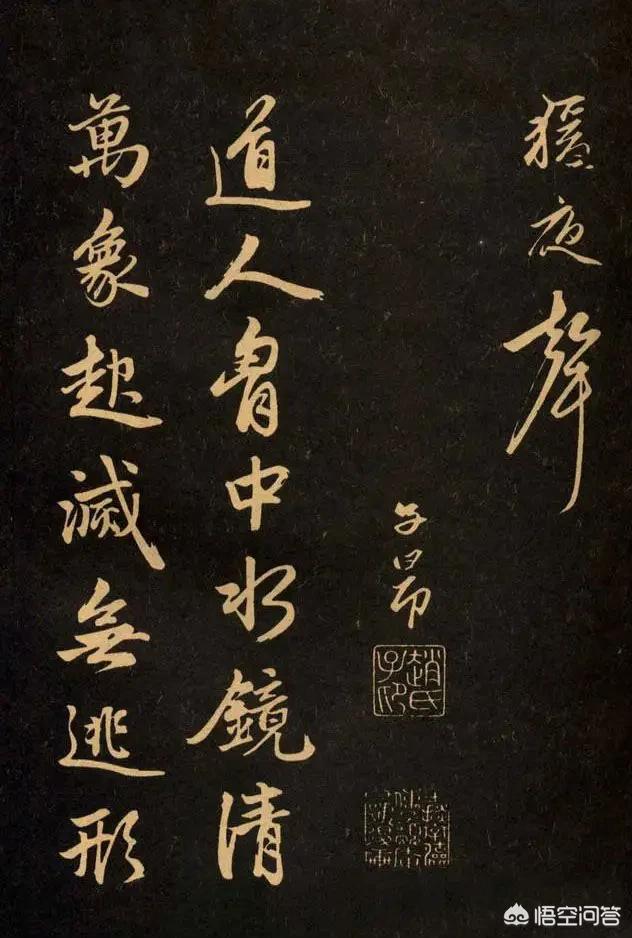 夜聲
子昂
趙氏子昂
道人胷中水鏡清
萬象起滅無逃形
悟空问答